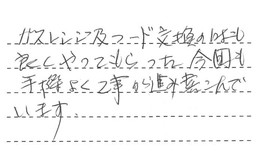 ガスレンジ及フード交換の時も
良くやってもらった。今回も
手際よく工事が進み喜こんで
います。